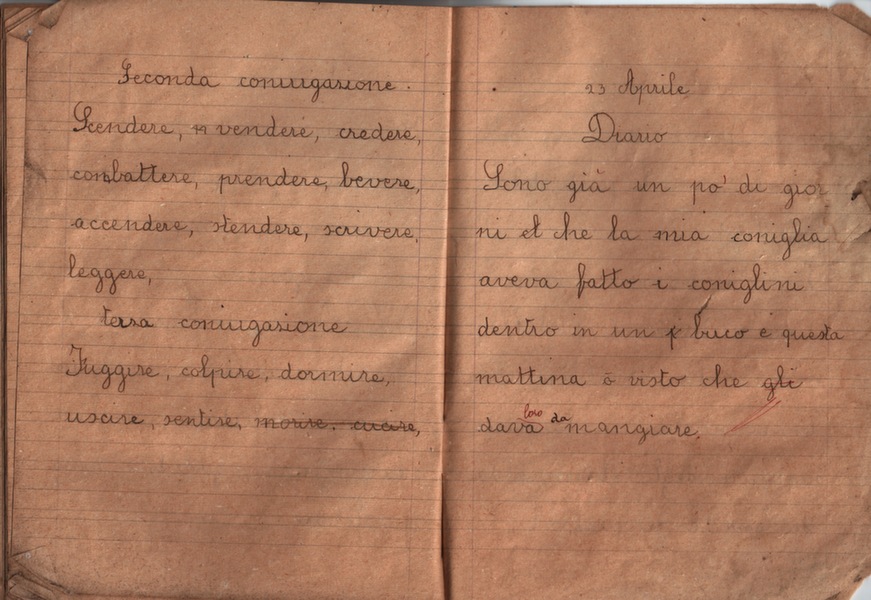 Seconda coniugazione.
Scendere, vendere, credere,
combattere, prendere, bevere,
accendere, stendere, scrivere,
leggere,
terza coniugazione
Fuggire, colpire, dormire,
uscire, sentire, morire. cucire,
23 Aprile
Diario
Sono già un po' di gior
ni che la mia coniglia
aveva fatto i coniglini
dentro in un buco e questa
mattina ò visto che gli
loro da
dava mangiare.